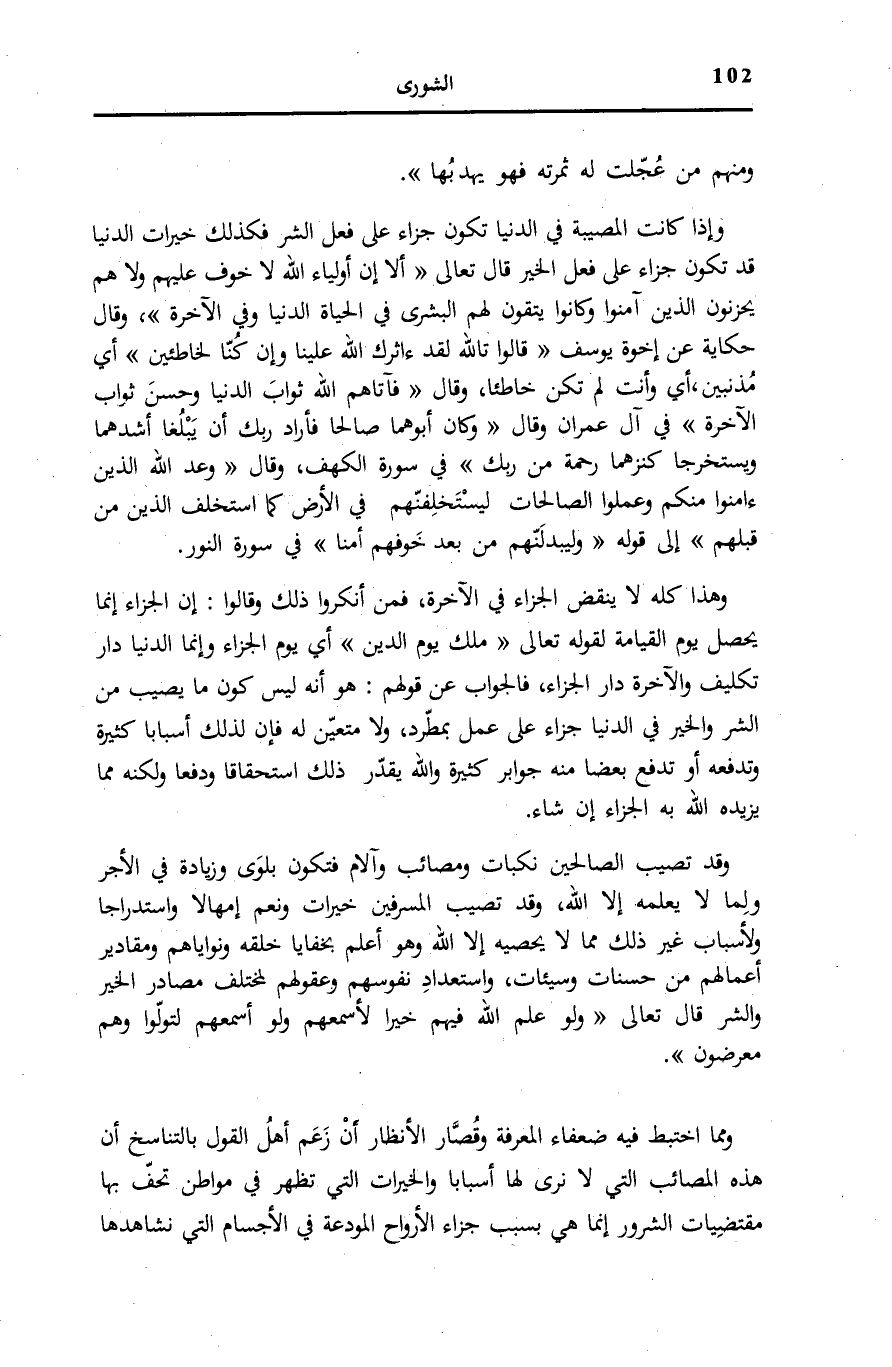 102
الشورى
ومنهم من عُجّلت له ثمرته فهو يهدبُها ».
وإذا كانت المصيبة في الدنيا تكون جزاء على فعل الشر فكذلك خيرات الدنيا
قد تكون جزاء على فعل الخير قال تعالى « ألا إن أولياء الله لا خوف عليهم ولا هم
يحزنون الذين آمنوا وكانوا يتقون لهم البشرى في الحياة الدنيا وفي الآخرة »، وقال
حكاية عن إخوة يوسف « قالوا تالله لقد ءاثرك الله علينا وإن كُنّا لخاطئين » أي
مُذنبين،أي وأنت لم تكن خاطئا، وقال « فآتاهم الله ثوابَ الدنيا وحسنَ ثواب
الآخرة » في آل عمران وقال « وكان أبوهما صالحا فأراد ربك أن يَبْلُغا أشدهما
ويستخرجا كنزهما رحمة من ربك » في سورة الكهف، وقال « وعد الله الذين
ءامنوا منكم وعملوا الصالحات ليسْتَخلِفنّهم في الأرض كما استخلف الذين من
قبلهم » إلى قوله « وليبدلَنّهم من بعد خَوفهم أمنا » في سورة النور.
وهذا كله لا ينقض الجزاء في الآخرة، فمن أنكروا ذلك وقالوا : إن الجزاء إنما
يحصل يوم القيامة لقوله تعالى « ملك يوم الدين » أي يوم الجزاء وإنما الدنيا دار
تكليف والآخرة دار الجزاء، فالجواب عن قولهم : هو أنه ليس كون ما يصيب من
الشر والخير في الدنيا جزاء على عمل بمطّرد، ولا متعيّن له فإن لذلك أسبابا كثيرة
وتدفعه أو تدفع بعضا منه جوابر كثيرة والله يقدّر ذلك استحقاقا ودفعا ولكنه مما
يزيده الله به الجزاء إن شاء.
وقد تصيب الصالحين نكبات ومصائب وآلام فتكون بلوَى وزيادة في الأجر
ولِما لا يعلمه إلا الله، وقد تصيب المسرفين خيرات ونعم إمهالا واستدراجا
ولأسباب غير ذلك مما لا يحصيه إلا الله وهو أعلم بخفايا خلقه ونواياهم ومقادير
أعمالهم من حسنات وسيئات، واستعدادِ نفوسهم وعقولهم لمختلف مصادر الخير
والشر قال تعالى « ولو علم الله فيهم خيرا لأسمعهم ولو أسمعهم لتولّوا وهم
معرضون ».
ومما اختبط فيه ضعفاء المعرفة وقُصَّار الأنظار أَنْ زَعَم أهلُ القول بالتناسخ أن
هذه المصائب التي لا نرى لها أسبابا والخيرات التي تظهر في مواطن تحفّ بها
مقتضِيات الشرور إنما هي بسبب جزاء الأرواح المودعة في الأجسام التي نشاهدها